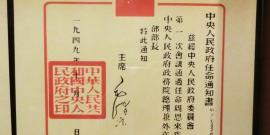 中央人民政府任命通知書
茲經中央人民政府委員會
第一次會議通過任命周恩來為
中央人民政府政務院總理兼外交
部部長
特此通知
主席
毛澤東
一九四九年 月 日
中華人民共
和國中央人
民政府之印